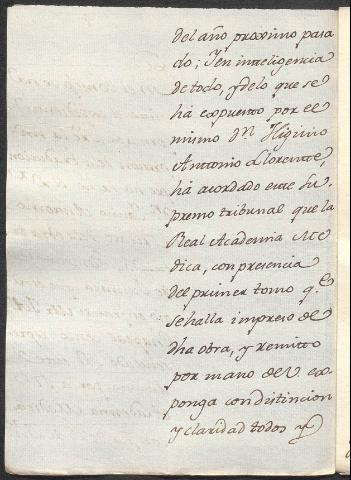 del año proximo pasa
do; Yen inteligencia
de todo, y delo que se
ha expuesto por el
mismo Dn. Higinio
Antonio Llorente,
ha acordado este Su
premo tribunal que la
Real Academia Me
dica, con presencia
del primer tomo qe.
se halla impreso de
dha obra, y remito
por mano de V. ex
ponga con distincion
y claridad todos y